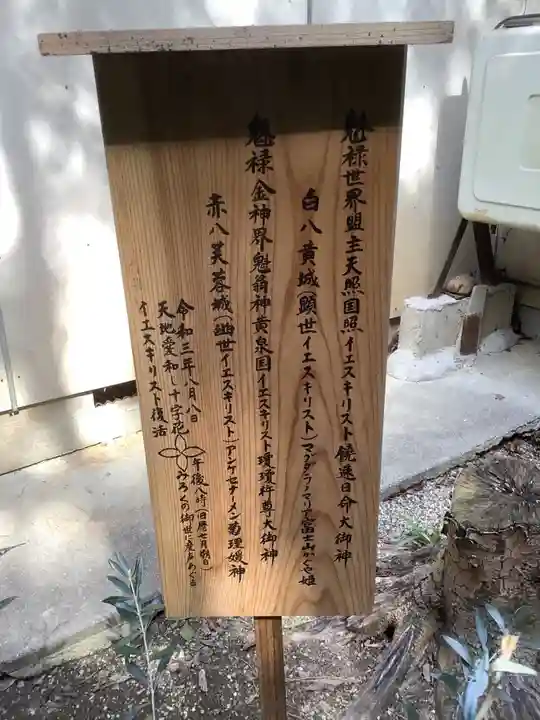 魁禄世界盟主天照国照イエスキリスト饒速日命大御神
白八黄城(顕世イエスキリスト)マグダラノマリア富士山かぐや姫
魁禄金神界魁翁神黄泉国イエスキリスト瓊瓊杵尊大御神
赤八芙蓉城(幽世イエスキリスト)アンケセナーメン菊理媛神
令和三年八月八日
午後八時(旧暦七月朔日)
天地愛和し十字花
みろくの御世に
イエスキリスト復活